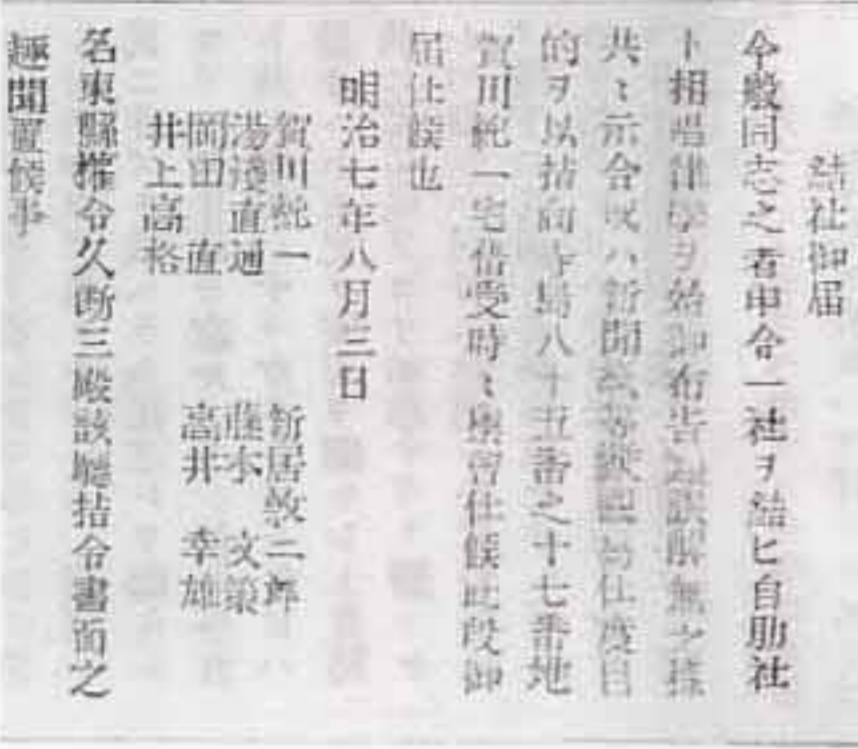 結社御届
今般同志之者申合一社ヲ結ヒ自助社
ト相唱律学ヲ始御布告誤解無之様
共ニ示合或ハ新聞紙等縦仕度目
的ヲ以拮向寺島八十五番之十七番地
賀川純一宅借受時々集会仕候此段御
届仕候也
明治七年八月三日
賀川純一
湯淺直通
岡田直
井上高格
新居敦二郎
藤本文策
高井幸雄
名東縣権令久断三殿該廳拮令書面之
趣聞置候事